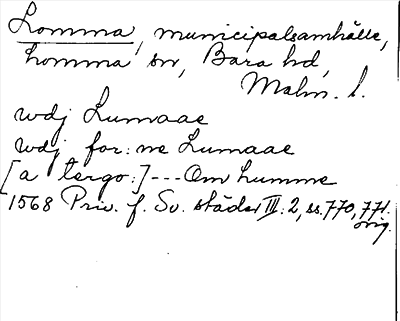 Lomma, municipalsamhälle,
Lomma sn, Bara hd,
Malm. l.
wdj Lumaae
wdj for:ne Lumaae
[a tergo:] --- Om humme
1568 Priv. f. Sv. städer III:2, ss. 770, 771.
orig.